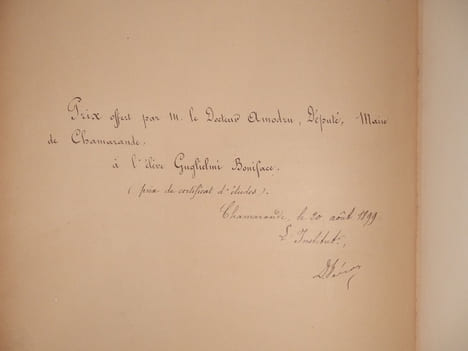 Prix offert par M. le Docteur Amodru, Député, Maire
de Chamarande.
à l'élève Guglielmi Boniface.
(prix de certificat d'études).
Chamarande, le 20 août 1899
L'Institut.,